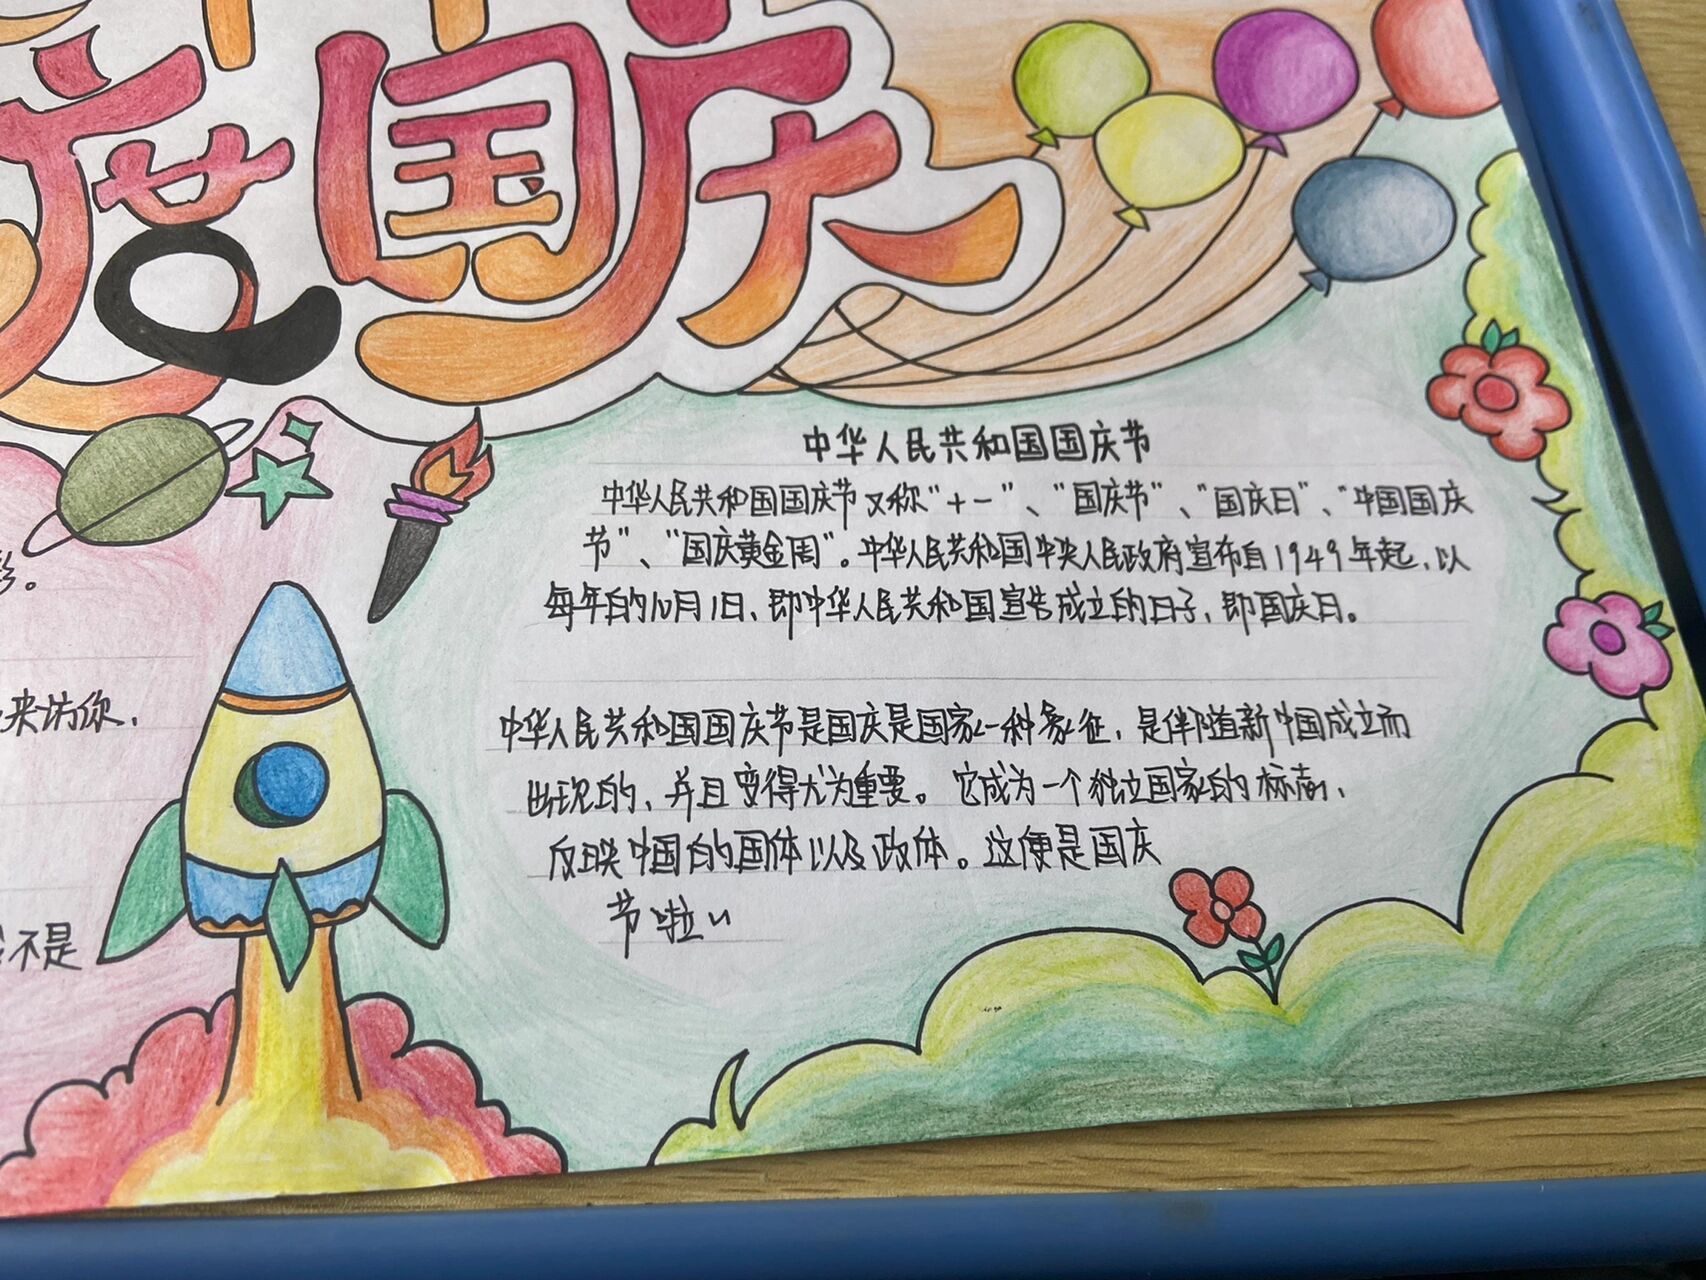 度国庆
中华人民共和国国庆节
中华人民共和国国庆节又称“十一”、“国庆节”、“国庆日”、“中国国庆
节”、“国庆黄金周”。中华人民共和国中央人民政府宣布自1949年起，以
每年的10月1日，即中华人民共和国宣告成立的日子，即国庆日。
中华人民共和国国庆节是国庆是国家一种象征，是伴随新中国成立而
出现的，并且变得尤为重要。它成为一个独立国家的标志，
反映中国的国体以及政体。这便是国庆
节啦
来访你，
不是